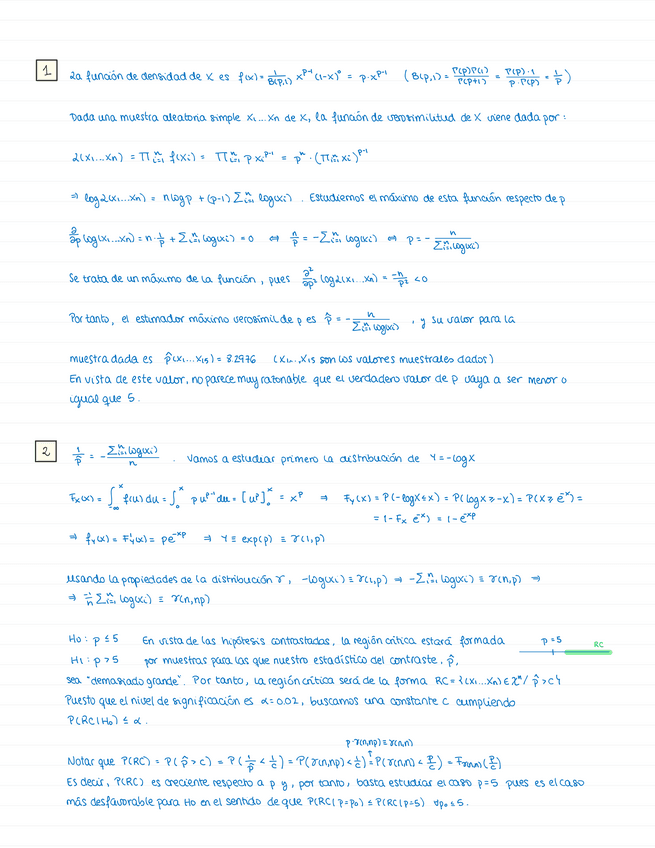 1 La función de densidad de X es f(x) = 1/B(p,1) x^(p-1) (1-x)^0 = p·x^(p-1) ( B(p,1) = Γ(p)Γ(1)/Γ(p+1) = Γ(p)·1/p·Γ(p) = 1/p )
Dada una muestra aleatoria simple X1...Xn de X, la función de verosimilitud de X viene dada por:
L(X1...Xn) = ∏_{i=1}^n f(Xi) = ∏_{i=1}^n p Xi^(p-1) = p^n · (∏_{i=1}^n Xi)^(p-1)
⇒ log L(X1...Xn) = n log p + (p-1) Σ_{i=1}^n log(Xi) . Estudiemos el máximo de esta función respecto de p
∂/∂p log(X1...Xn) = n·1/p + Σ_{i=1}^n log(Xi) = 0 ⇔ n/p = -Σ_{i=1}^n log(Xi) ⇔ p = - n/Σ_{i=1}^n log(Xi)
Se trata de un máximo de la función, pues ∂²/∂p² log L(X1...Xn) = -n/p² < 0
Por tanto, el estimador máximo verosímil de p es p̂ = - n/Σ_{i=1}^n log(Xi) , y su valor para la
muestra dada es p̂(X1...X15) = 8.2976 (X1...,X15 son los valores muestrales dados)
En vista de este valor, no parece muy razonable que el verdadero valor de p vaya a ser menor o
igual que 5.
2 1/p̂ = - Σ_{i=1}^n log(Xi)/n . Vamos a estudiar primero la distribución de Y = -log X
F_X(x) = ∫_{-∞}^x f(u) du = ∫_0^x p u^(p-1) du = [u^p]_0^x = x^p ⇒ F_Y(x) = P(-log X ≤ x) = P(log X ≥ -x) = P(X ≥ e^(-x)) =
= 1 - F_X(e^(-x)) = 1 - e^(-xp)
⇒ f_Y(x) = F'_Y(x) = pe^(-xp) ⇒ Y ≡ exp(p) ≡ γ(1,p)
Usando la propiedades de la distribución γ, -log(Xi) ≡ γ(1,p) ⇒ -Σ_{i=1}^n log(Xi) ≡ γ(n,p) ⇒
⇒ -1/n Σ_{i=1}^n log(Xi) ≡ γ(n,np)
H0: p ≤ 5 En vista de las hipótesis contrastadas, la región crítica estará formada p=5 RC
H1: p > 5 por muestras para las que nuestro estadístico del contraste, p̂,
sea "demasiado grande". Por tanto, la región crítica será de la forma RC = {(X1...Xn) ∈ χ^n / p̂ > c}
Puesto que el nivel de significación es α=0.02, buscamos una constante c cumpliendo
P(RC|H0) ≤ α.
p·γ(n,np) ≡ γ(n,n)
Notar que P(RC) = P(p̂ > c) = P(1/p̂ < 1/c) = P(γ(n,np) < 1/c) = P(γ(n,n) < p/c) = F_γ(n,n)(p/c)
Es decir, P(RC) es creciente respecto a p y, por tanto, basta estudiar el caso p=5 pues es el caso
más desfavorable para H0 en el sentido de que P(RC|p=p0) ≤ P(RC|p=5) ∀p0 ≤ 5.